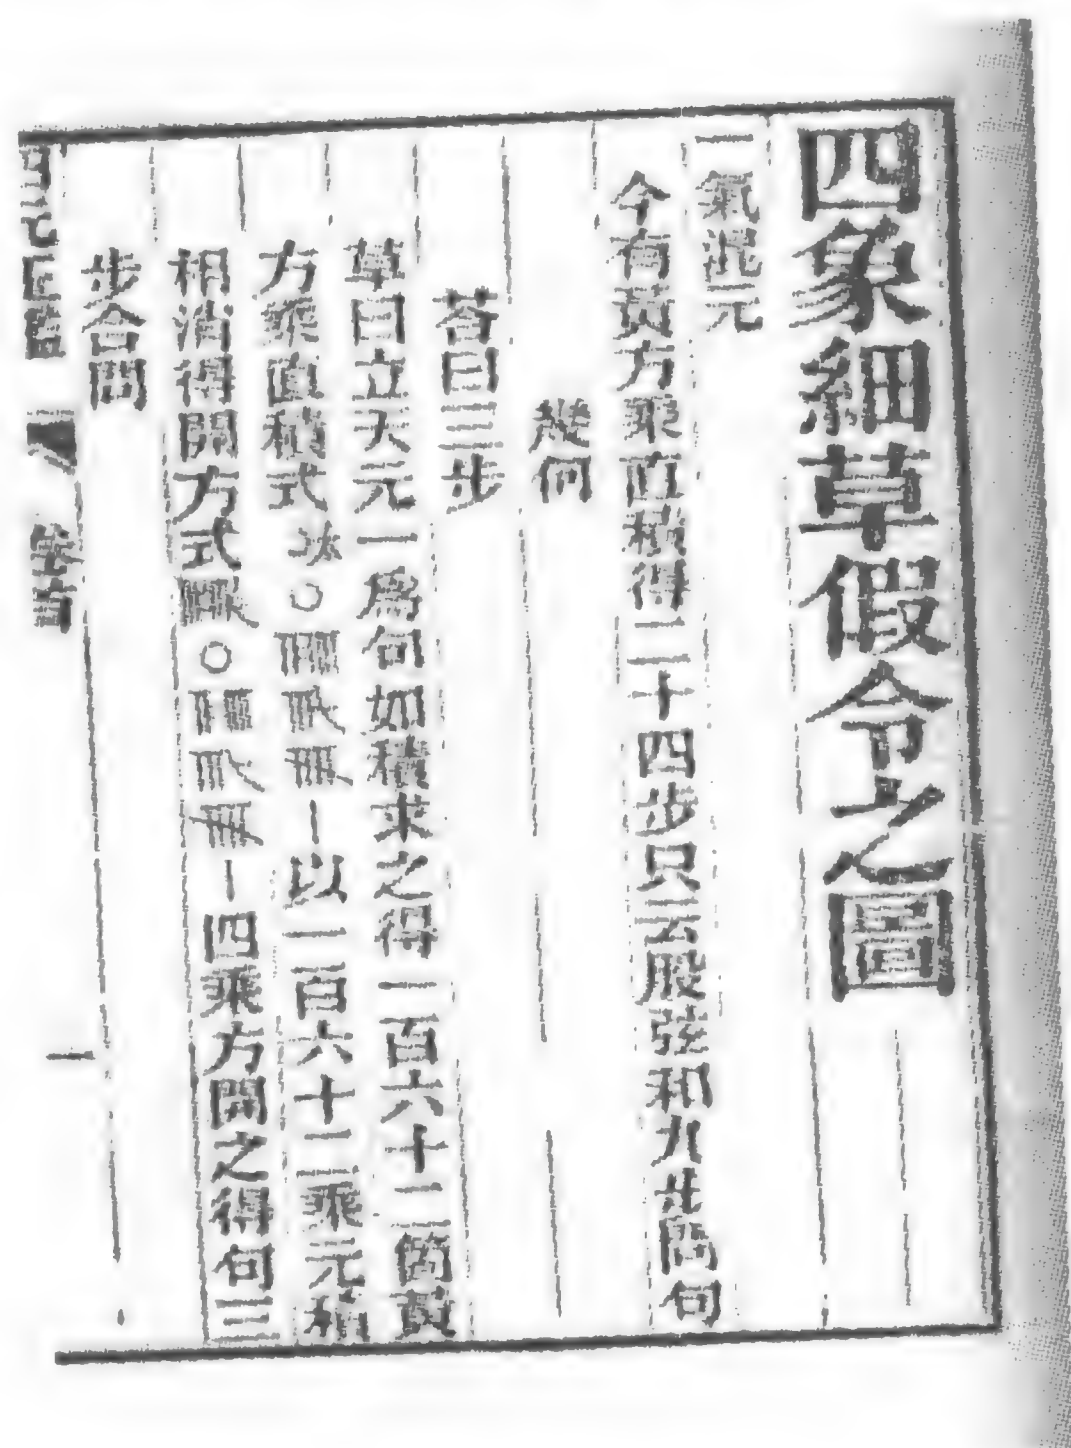 四象細草假令之圖
一氣混元
今有黃方乘直積得二十四步只云股弦和九步問句
幾何
荅曰三步
草曰立天元一為句如積求之得一百六十二箇黃
方乘直積式
○
以一百六十二乘元積
相消得開方式
○
四乘方開之得句三
步合問
四元玉鑑
卷首
一